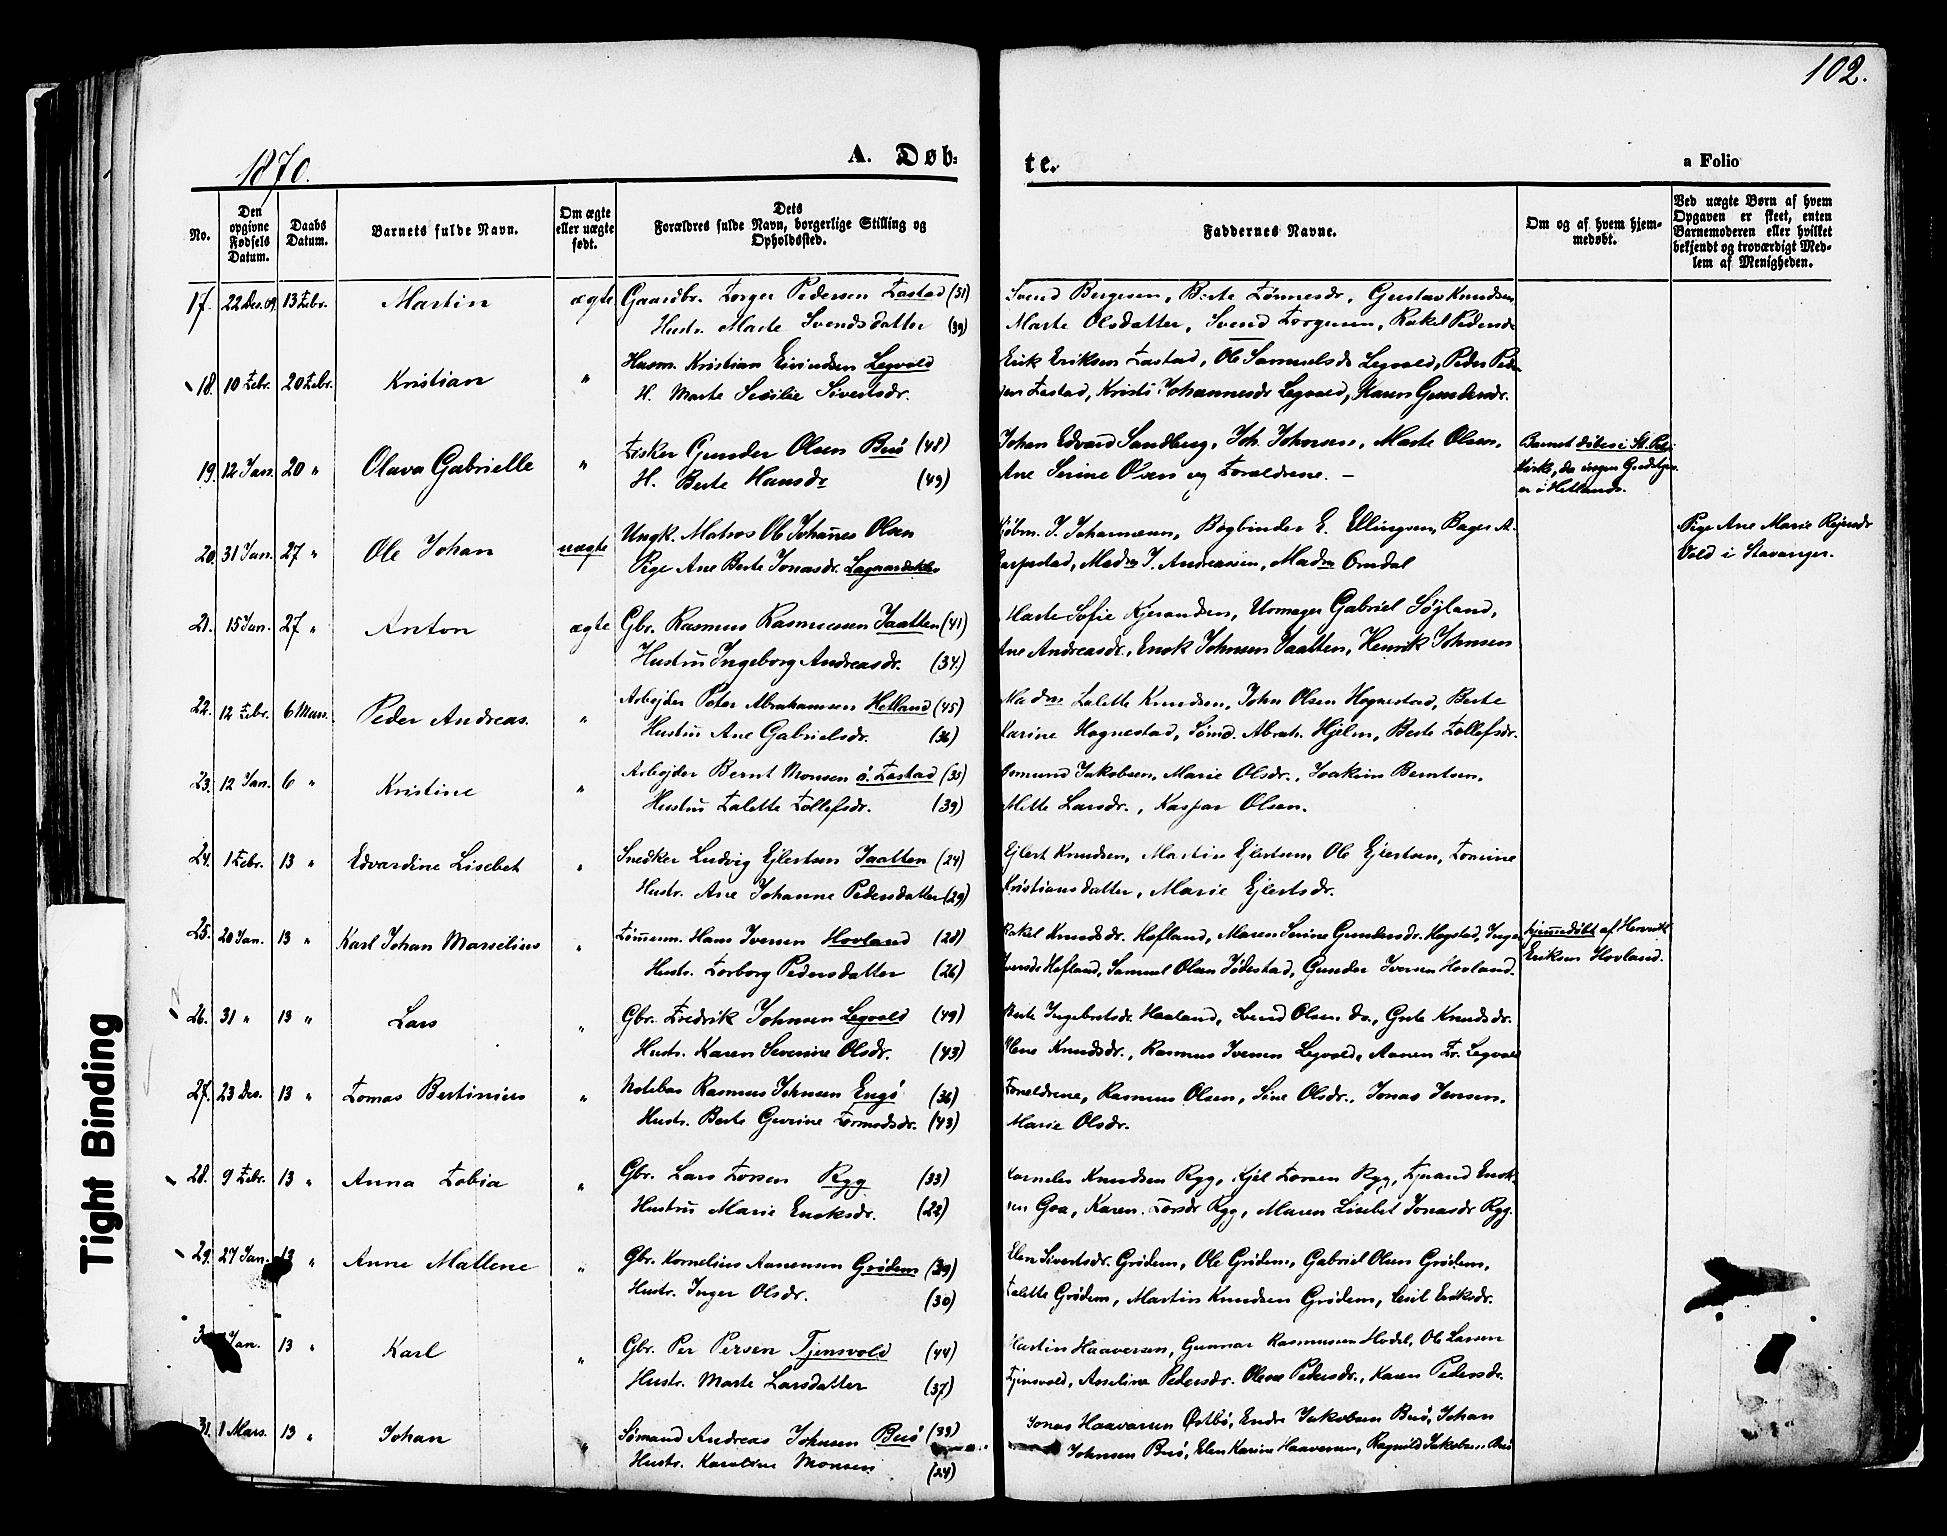 102.
1870.
A. Døb-
te.
a Folio
No.
Den opgivne Fødsels Datum.
Daabs Datum.
Barnets fulde Navn.
Om ægte eller uægte født.
Dets Forældres fulde Navn, borgerlige Stilling og Opholdssted.
Faddernes Navne.
Om og af hvem hjemmedøbt.
Ved uægte Børn af hvem Opgaven er skeet, enten Barnemoderen eller hvilket bekjendt og troværdigt Medlem af Menigheden.
17. 22 Des. 69 13 Febr. Martin ægte Gaardbr. Torger Pedersen Tastad (31) Svend Bergesen, Berte Tønnesdr, Gustav Knudsen
Hustr. Marte Svendsdatter (39) Marte Olsdatter, Svend Torgersen, Rakel Pedersdr
18. 10 Febr. 20 Febr. Kristian " Husm. Kristian Eivindsen Legvold Erik Eriksen Tastad, Ole Samuelsen Legvold, Peder Peder-
H. Marte Sesilie Sivertsdr. sen Tastad, Kristi Johannesdr Legvold, Karen Gundersdr.
19. 12 Jan. 20 " Olava Gabrielle " Fisker Gunder Olsen Buø (48) Johan Edvard Sandberg, Joh. Johnsen, Marte Olsen,
H. Berte Hansdr (49) Ane Serine Olsen og Forældrene. —
Barnet døbes i St. Petri
Kirke, da ingen Gudstjen.
er i Hetlands.
20. 31 Jan. 27 " Ole Johan uægte Ungk. Matros Ole Johannes Olsen Kjøbm. J. Johannesen, Bogbinder E. Ellingsen, Bager A.
Pige Ane Berte Jonasdr. Lagaardsklev Madm J. Andreassen, Madm Omdal
Pige Ane Marie Rejersdr
Vold i Stavanger.
21. 15 Jan. 27 " Anton ægte Gbr. Rasmus Rasmussen Jaatten (41) Marte Sofie Kjerandsen, Urmager Gabriel Søyland,
Hustru Ingeborg Andreasdr. (34.) Ane Andreasdr., Enok Johnsen Jaatten, Henrik Johnsen
22. 12 Febr. 6 Mars. Peder Andreas. " Arbejder Peter Abrahamsen Hetland (45) Madme Lalette Knudsen, John Olsen Hognestad, Berte
Hustru Ane Gabrielsdr. (36) Karine Hognestad, Sømd. Abrah. Hjelm, Berte Tollefsdr.
23. 12 Jan. 6 " Kristine " Arbejder Bernt Monsen ø. Tastad (35) Osmund Jakobsen, Marie Olsdr., Joakim Berntsen,
Hustru Talette Tollefsdr. (39) Mette Larsdr., Kaspar Olsen.
24. 1 Febr. 13 " Edvardine Lisebet " Snedker Ludvig Ejlertsen Jaatten (24) Ejlert Knudsen, Martin Ejlertsen, Ole Ejlertsen, Tomine
Hustr. Ane Johanne Pedersdatter (29) Kristiansdatter, Marie Ejlertsdr.
25. 20 Jan. 13 " Karl Johan Marselius " Tømmerm. Hans Iversen Hovland (28) Rakel Knudsdr. Hofland, Maren Serine Gundersdr. Hogstad, Inger
Hustr. Torborg Pedersdatter (26) Iversdr Hofland, Samuel Olsen Jødestad, Gunder Iversen Hovland.
hjemmedøbt af Henrik
Eriksen Hovland.
26. 31 " 13 " Lars " Gbr. Fredrik Johnsen Legvold (49) Berte Ingebretsdr. Haaland, Svend Olsen do., Gute Knudsdr.
Hustr. Karen Severine Olsdr. (43) Elene Knudsdr., Rasmus Iversen Legvold, Aanen Fr. Legvold
27. 23 Des. 13 " Tomas Bertinius " Notebas Rasmus Johnsen Engø (36) Forældrene, Rasmus Olsen, Sine Olsdr., Jonas Jensen,
Hustr. Berte Gurine Tormodsdr. (43) Marie Olsdr.
28. 9 Febr. 13 " Anna Tobia " Gbr. Lars Larsen Rygg (33) Kornelius Knudsen Rygg, Kjel Larsen Rygg, Tjerand Enok-
Hustru Marie Enoksdr. (22) sen Goa, Karen Larsdr Rygg, Maren Lisebet Jonasdr Rygg.
29. 27 Jan. 13 " Anne Mallene " Gbr. Kornelius Aanensen Grødem (39) Elen Sivertsdr. Grødem, Ole Grødem, Gabriel Olsen Grødem,
Hustr. Inger Olsdr. (30) Talette Grødem, Martin Knudsen Grødem, Cecil Eriksdr.
Jan. 13 " Karl " Gbr. Per Persen Tjensvold (44) Martin Haaversen, Gunnar Rasmussen Hodel, Ole Larsen
Hustr. Marte Larsdatter (37) Tjensvold, Anseline Pedersdr. Olene Pedersdr., Karen Pedersdr.
31. 1 Mars. 13 " Johan " Sømand Andreas Johnsen Buø (33) Jonas Haavarsen Østbø, Endre Jakobsen Buø, Johan
Hustr. Karoline Monsen (24) Johnsen Buø, Elen Karine Haaversen, Ragnild Jakobsen Buø
Tight Binding